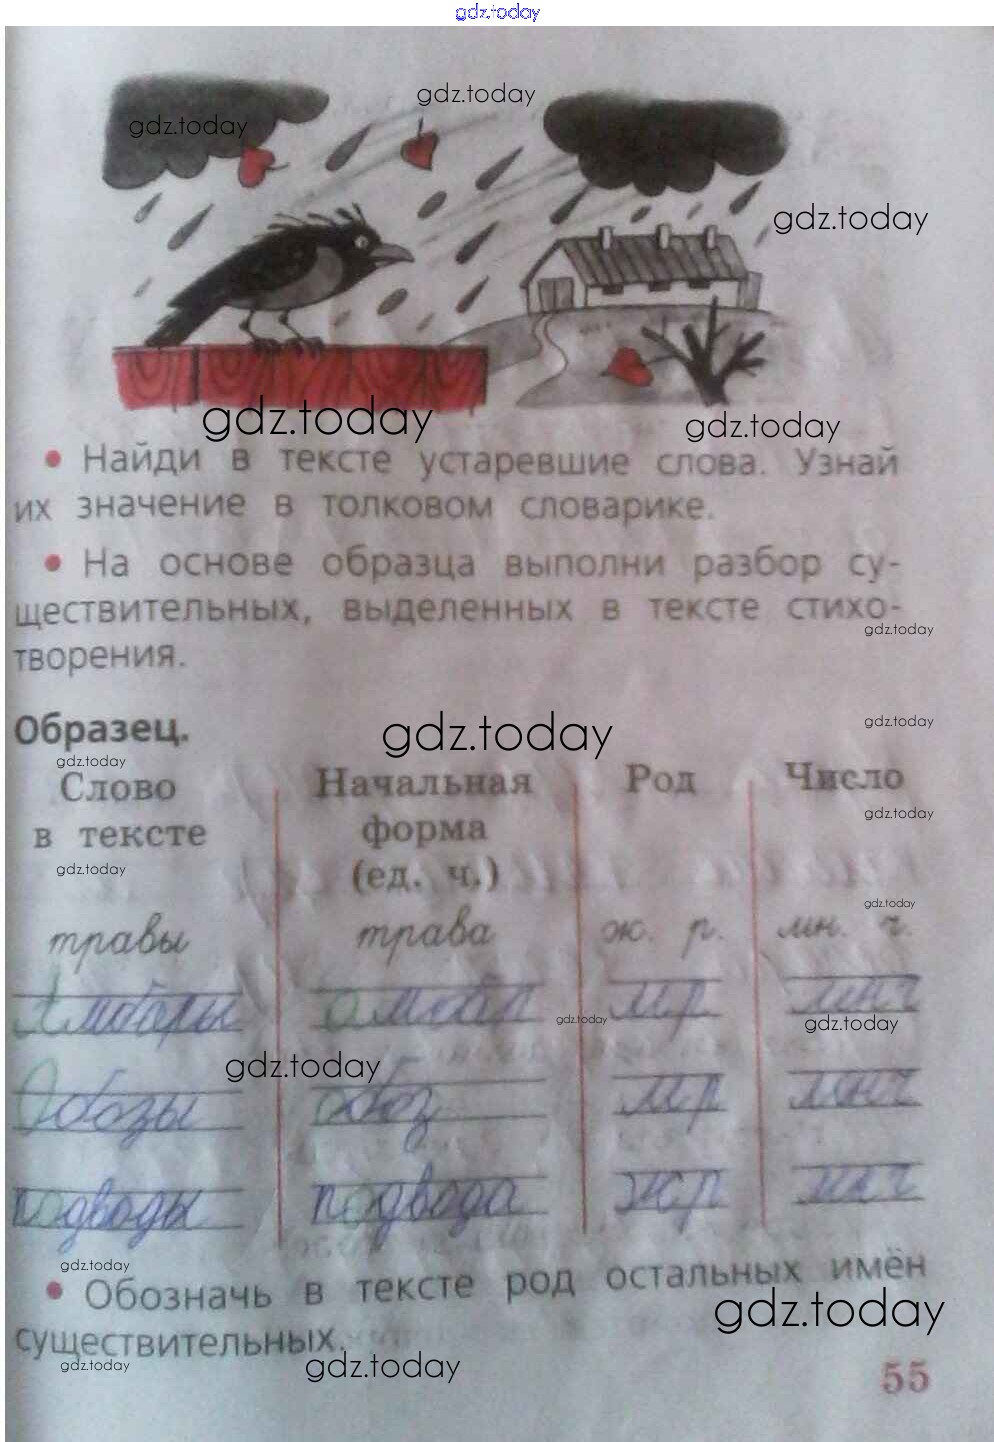 gdz.today
gdz.today
gdz.today
gdz.today
gdz.today
gdz.today
• Найди в тексте устаревшие слова. Узнай
их значение в толковом словарике.
• На основе образца выполни разбор су-
ществительных, выделенных в тексте стихо-
gdz.today
творения.
Образец.
gdz.today
gdz.today
gdz.today
Слово Начальная Род Число
в тексте форма
gdz.today
(ед. ч.)
gdz.today
gdz.today
травы трава ж. р. мн. ч.
Амбары амбар мр мнч
gdz.today
gdz.today
gdz.today
Обозы обоз мр мнч
подводы подвода жр мнч
gdz.today
• Обозначь в тексте род остальных имён
gdz.today
существительных.
gdz.today
gdz.today
55